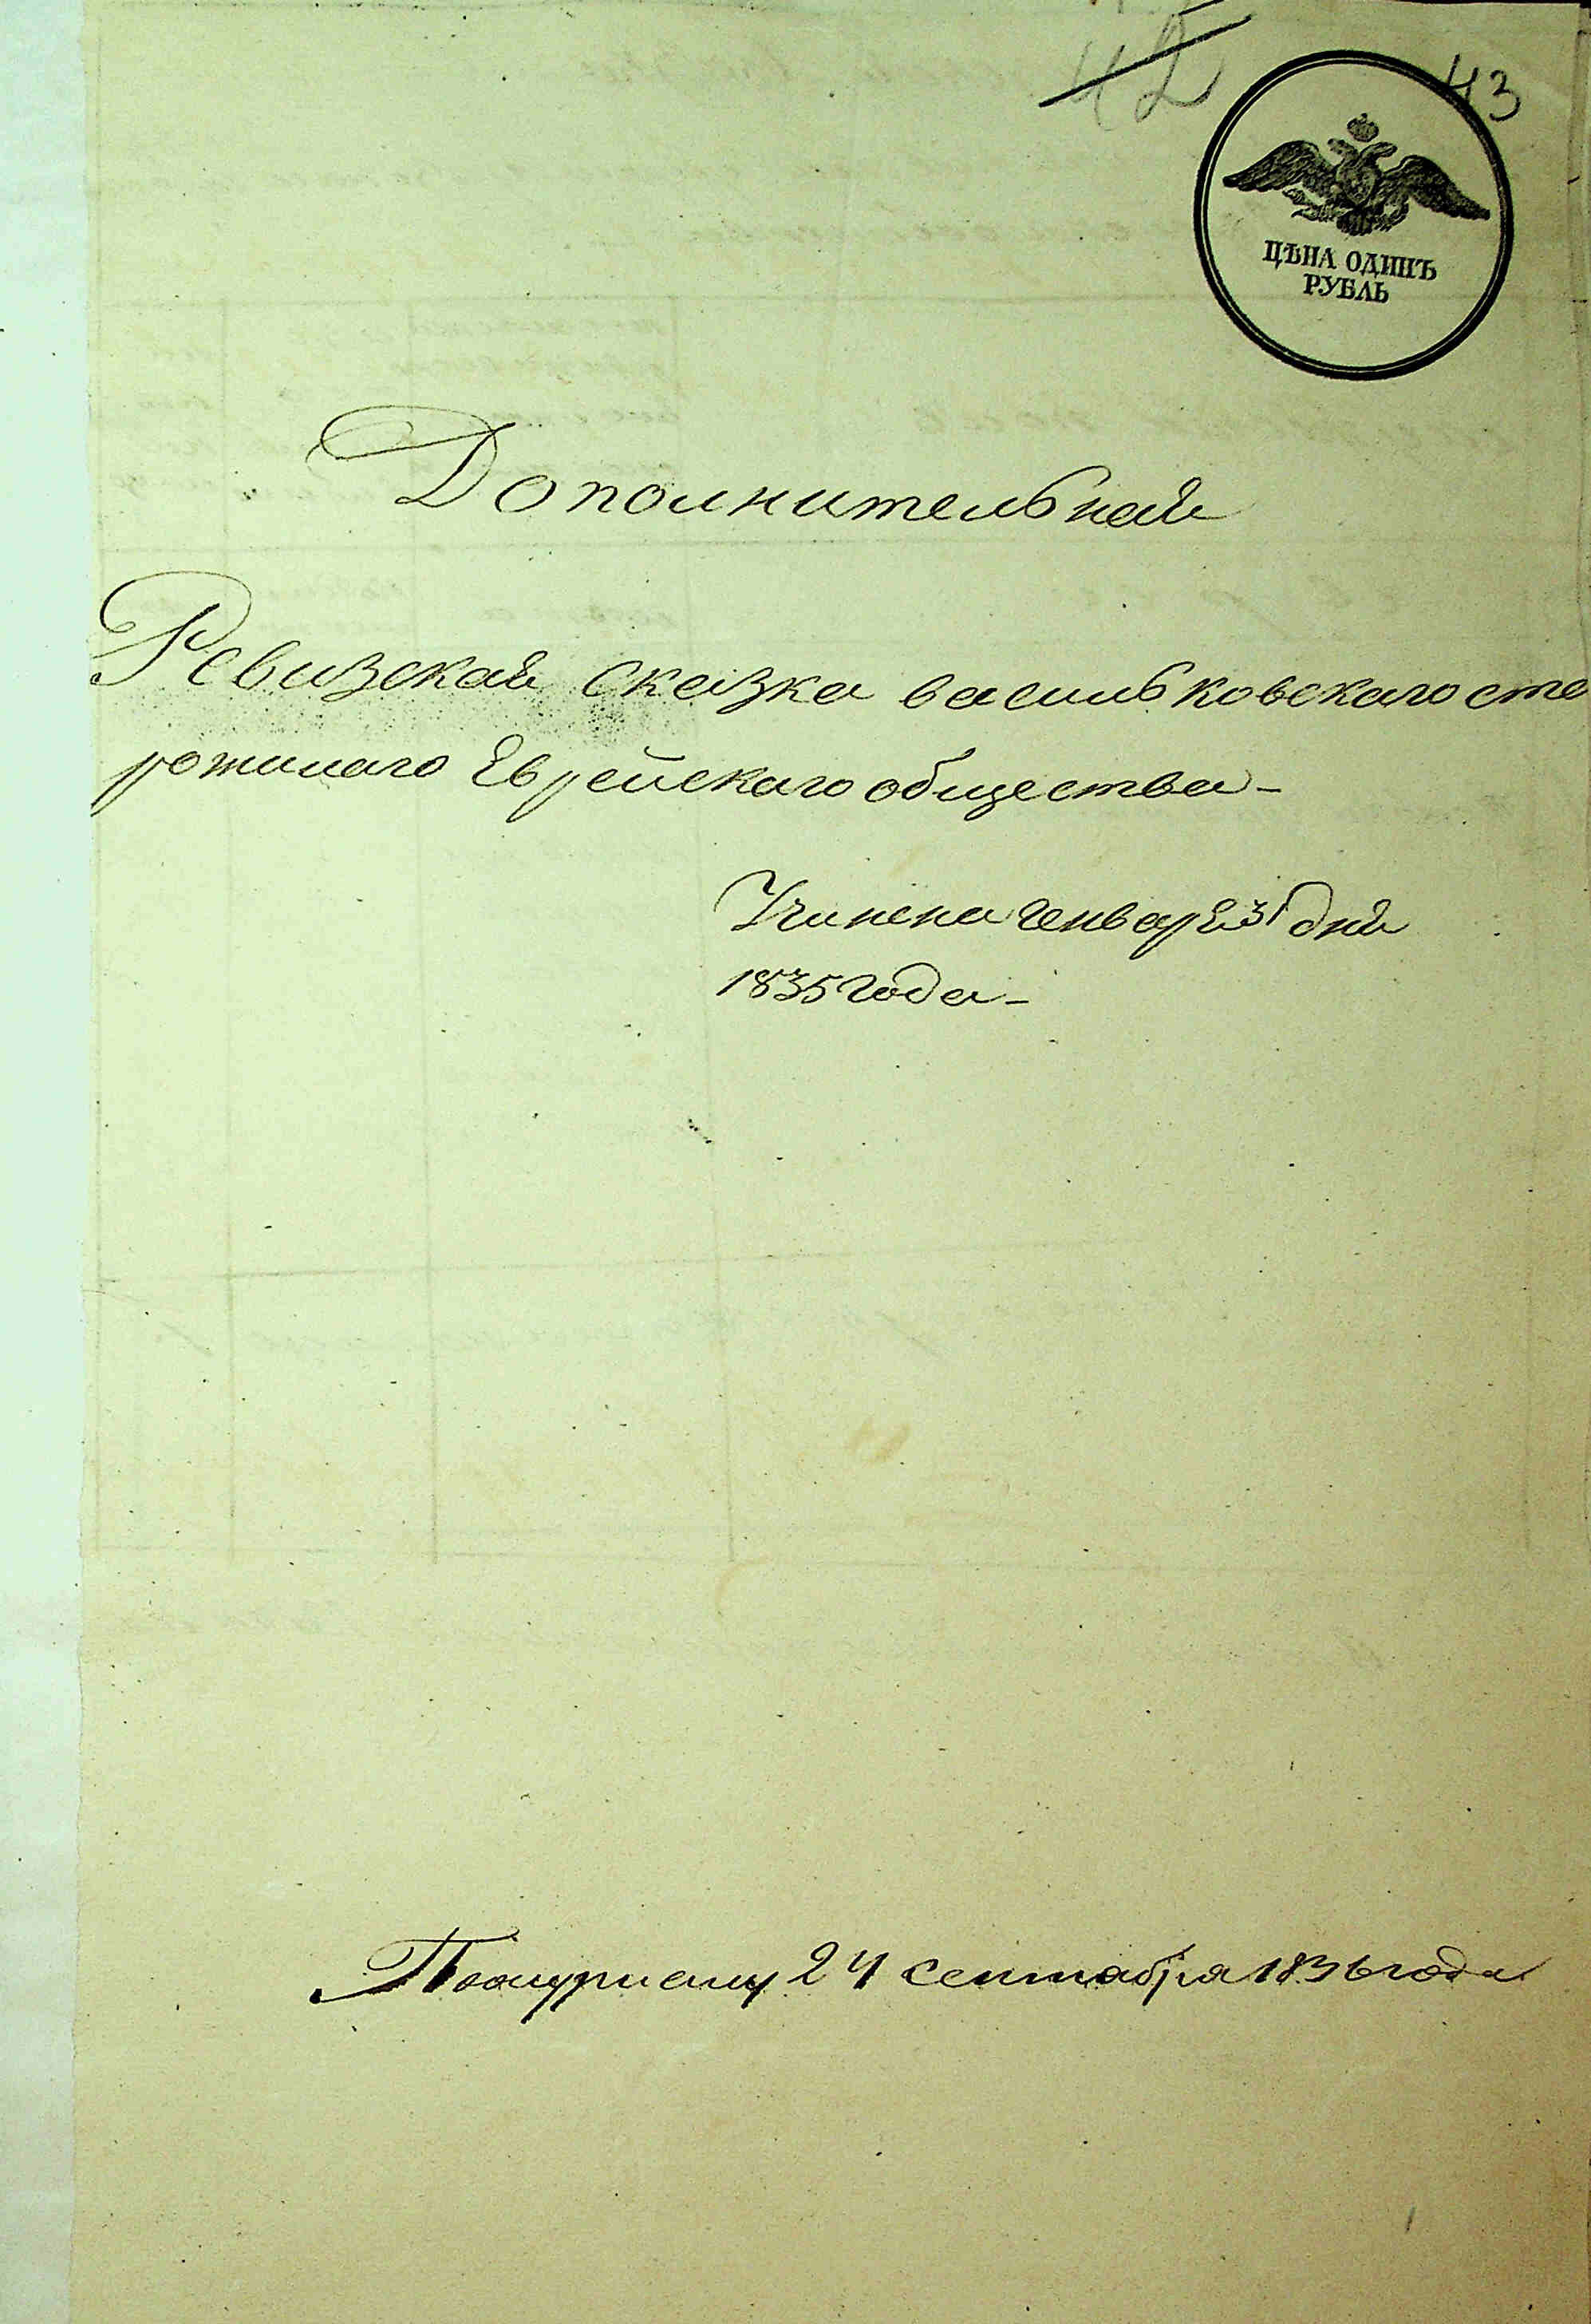 42
43
ЦѢНА ОДИНЪ
РУБЛЬ
Дополнительная
Ревизская сказка васильковскаго ста
рожилаго Еврейскаго общества-
Учинена Генваря 31 дня
1835 года-
24 сентября 1836 года